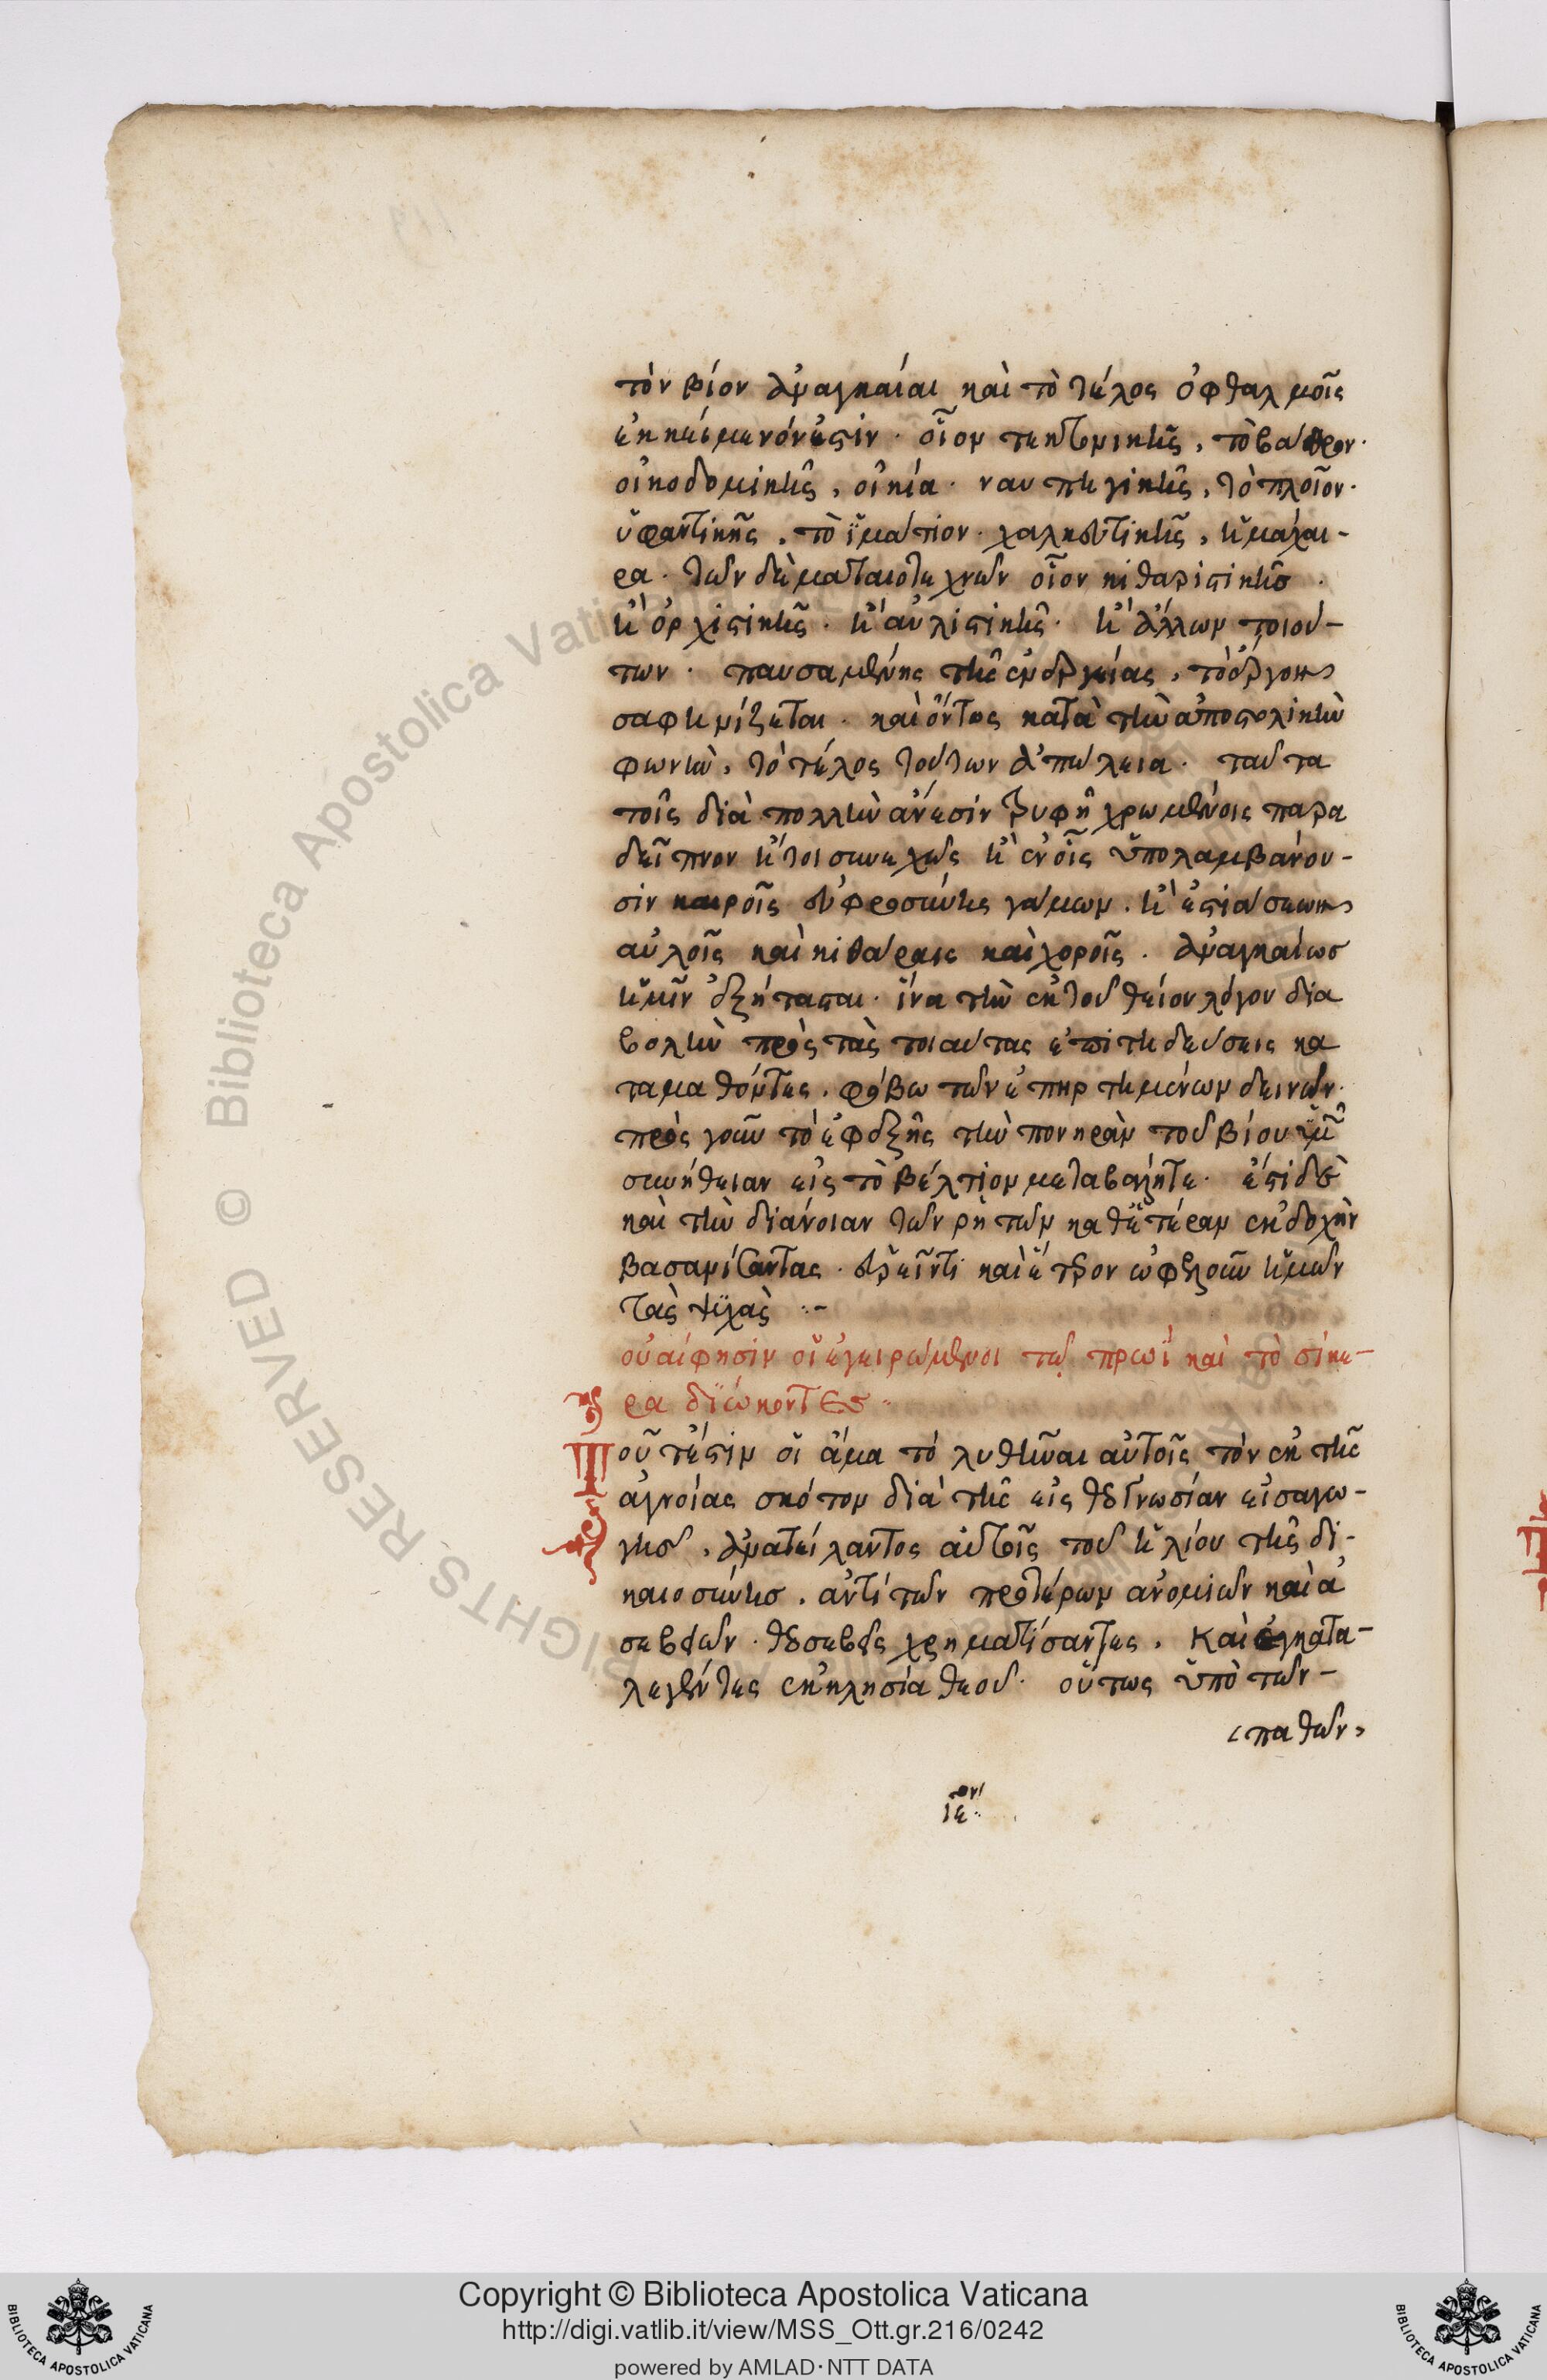 τὸν βίον ἀναγκαίαι καὶ τὸ τέλος ὀφθαλμοῖς
ἐκκείμενόν ἐστιν· οἷον τεκτονικῆς, τὸ βάθρον·
οἰκοδομικῆς, οἰκία· ναυπηγικῆς, τὸ πλοῖον·
ὑφαντικῆς, τὸ ἱμάτιον· χαλκευτικῆς, ἡ μάχαι-
ρα· τῶν δὲ ματαιοτεχνῶν οἷον κιθαριστικῆς
ἢ ὀρχιστικῆς· ἢ αὐλιστικῆς· ἢ ἄλλων τοιού-
των· παυσαμένης τῆς ἐνεργείας, τὸ ἔργον
σαφηνίζεται· καὶ ὄντως κατὰ τὴν ἀποστολικὴν
φωνὴν, τὸ τέλος τούτων ἀπώλεια· ταῦτα
τοῖς διὰ πολλὴν ἄνεσιν τρυφῇ χρωμένοις παρὰ
δεῖπνον ἤτοι συνεχῶς ἢ ἐν οἷς ὑπολαμβάνου-
σιν καιροῖς εὐφροσύνης γάμων· ἢ ἑστιάσεων
αὐλοῖς καὶ κιθάραις καὶ χοροῖς· ἀναγκαίως
ἡμῖν ἐξήτασται· ἵνα τὴν ἐκ τοῦ θείου λόγου δια
βολὴν πρὸς τὰς τοιαύτας ἐπιτηδεύσεις κα
ταμαθόντες, φόβω τῶν ἐπηρτημένων δεινῶν·
πρὸς γοῦν τὸ ἐφεξῆς τὴν πονηρὰν τοῦ βίου ὑμῶν
συνήθειαν εἰς τὸ βέλτιον μεταβάλητε· ἔστι δὲ
καὶ τὴν διάνοιαν τῶν ρητῶν καθ' ἑτέραν ἐκδοχὴν
βασανίσαντας· εὑρεῖν τι καὶ ἕτερον ὠφελοῦν ἡμῶν
τὰς ψυχὰς :-
οὐαί φησιν οἱ ἐγειρώμενοι τῶ πρωῒ καὶ τὸ σίκε-
ρα διώκοντες·
Τοῦτέστιν οἱ ἅμα τὸ λυθῆναι αὐτοῖς τὸν ἐκ τῆς
ἀγνοίας σκότον διὰ τῆς εἰς θεογνωσίαν εἰσαγω-
γῆς, ἀνατείλαντος αὐτοῖς τοῦ ἡλίου τῆς δι-
καιοσύνης, ἀντὶ τῶν προτέρων ἀνομιῶν καὶ ἀ
σεβειῶν· θεοσεβεῖς χρηματίσαντες, καὶ ἐγκατα-
λεγέντες ἐκκλησία θεοῦ· οὕτως ὑπὸ τῶν-
παθῶν
ιε ον
Copyright © Biblioteca Apostolica Vaticana
http://digi.vatlib.it/view/MSS_Ott.gr.216/0242
powered by AMLAD·NTT DATA